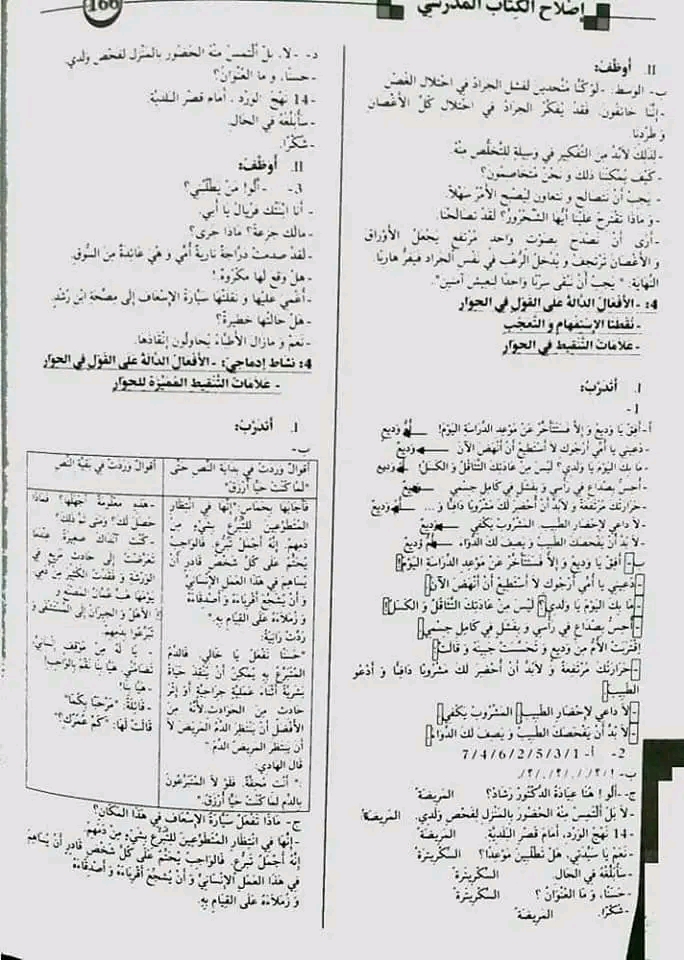 إصلاح الكتاب المدرسي
166
II. أوظف:
ب- الوسط. - لو كنّا متّحدين لفشل الجراد في احتلال الغصن
- إنّنا خائفون. فقد يفكّر الجراد في احتلال كلّ الأغصان
و طردنا
- لذلك لابدّ من التّفكير في وسيلة للتّخلّص منه
- كيف يمكننا ذلك و نحن متخاصمون؟
- يجب أن نتصالح و نتعاون ليصبح الأمر سهلا.
- و ماذا تقترح علينا أيّها الشّحرور؟ لقد تصالحنا.
- أرى أن نصدح بصوت واحد مرتفع يجعل الأوراق
و الأغصان ترتجف و يدخل الرّعب في نفس الجراد فيفرّ هاربا.
النّهاية: " يجب أن نبقى سربا واحدا لنعيش آمنين".
4: - الأفعال الدّالّة على القول في الحوار
- نقطتا الإستفهام و التّعجّب
- علامات التّنقيط في الحوار
I. أتدرّب:
1 -
أ- أفق يا وديع و إلاّ فستتأخّر عن موعد الدّراسة اليوم! أمّ وديع
- دعيني يا أمّي أرجوك لا أستطيع أن أنهض الآن وديع
- ما بك اليوم يا ولدي؟ ليس من عادتك التّثاقل و الكسل! أمّ وديع
- أحسّ بصداع في رأسي و بفشل في كامل جسمي وديع
- حرارتك مرتفعة و لابدّ أن أحضر لك مشروبا دافئا و ... أمّ وديع
- لا داعي لإحضار الطّبيب. المشروب يكفي وديع
- لا بدّ أن يفحصك الطّبيب و يصف لك الدّواء أمّ وديع
ب- أفق يا وديع و إلاّ فستتأخّر عن موعد الدّراسة اليوم!
- دعيني يا أمّي أرجوك لا أستطيع أن أنهض الآن
- ما بك اليوم يا ولدي؟ ليس من عادتك التّثاقل و الكسل!
- أحسّ بصداع في رأسي و بفشل في كامل جسمي.
إقتربت الأمّ من وديع و تحسّست جبينه و قالت:
- حرارتك مرتفعة و لابدّ أن أحضر لك مشروبا دافئا و أدعو
الطّبيب
- لا داعي لإحضار الطّبيب. المشروب يكفي
- لا بدّ أن يفحصك الطّبيب و يصف لك الدّواء
2- أ- 7/4/6/2/5/3/1
ج- ألو! هنا عيادة الدّكتور رشاد؟ المريضة
- لا بل ألتمس منه الحضور بالمنزل لفحص ولدي. المريضة
- 14 نهج الورد، أمام قصر البلديّة. المريضة
- نعم يا سيّدتي. هل تطلبين موعدا؟ السّكريترة
- سأبلغه في الحال. السّكريترة
- حسنا، و ما العنوان؟ السّكريترة
- شكرا. المريضة
د- - لا، بل ألتمس منه الحضور بالمنزل لفحص ولدي.
- حسنا، و ما العنوان؟
- 14 نهج الورد، أمام قصر البلديّة.
- سأبلغه في الحال.
- شكرا.
II. أوظف:
3- - ألو! من يطلبني؟
- أنا ابنتك فريال يا أبي.
- مالك جزعة؟ ماذا جرى؟
- لقد صدمت درّاجة ناريّة أمّي و هي عائدة من السّوق.
- هل وقع لها مكروه؟
- أغمي عليها و نقلتها سيّارة الإسعاف إلى مصحّة ابن رشد.
- هل حالتها خطيرة؟
- نعم و مازال الأطبّاء يحاولون إنقاذها.
4: نشاط إدماجي: - الأفعال الدّالّة على القول في الحوار
- علامات التّنقيط المميّزة للحوار
I. أتدرّب:
ب-
أقوال وردت في بداية النّص حتّى
"لما كنت حيّا أرزق"
فأجابها بحماس:"إنّها في انتظار
المتطوّعين للتّبرّع بشيء من
دمهم. إنّه أجمل تبرّع. فالواجب
يحتّم على كلّ شخص قادر أن
يساهم في هذا العمل الإنسانيّ
و أن يشجّع أقرباءه و أصدقاءه
و زملاءه على القيام به."
ردّت رانية:
"حسنا تفعل يا خالي. فالدّم
المتبرّع به يمكن أن ينقذ حياة
بشريّة أثناء عمليّة جراحيّة أو إثر
حادث من الحوادث.لأنّه من
الأفضل أن ينتظر الدّم المريض لا
أن ينتظر المريض الدّم."
قال الهادي:
:" أنت محقّة. فلو لا المتبرّعون
بالدّم لما كنت حيّا أرزق."
أقوال وردت في بقيّة النّص
- هذه معلومة أجهلها؟ فماذا
حصل لك؟ و متى تمّ ذلك؟
- كنت آنذاك صغيرة عندما
تعرّضت إلى حادث مريع في
الورشة و فقدت الكثير من دمي
يومها هبّ عمّال المصنع و
الأهل و الجيران إلى المستشفى و
تبرّعوا بدمهم.
- يا له من موقف إنسانيّ
تضامنيّ. هيّا بنا نقم بالواجب!
- هيّا بنا!
- قائلة: "مرحبا بكما"
قالت لها: "كم عمرك؟"
ج- ماذا تفعل سيّارة الإسعاف في هذا المكان؟
- إنّها في انتظار المتطوّعين للتّبرّع بشيء من دمهم.
إنّه أجمل تبرّع. فالواجب يحتّم على كلّ شخص قادر أن يساهم
في هذا العمل الإنسانيّ و أن يشجّع أقرباءه و أصدقاءه
و زملاءه على القيام به.